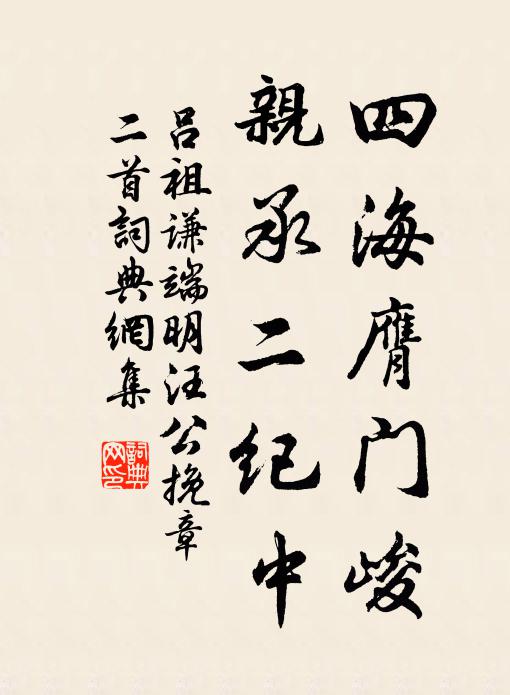 四海膺門峻
親承二纪中
吕祖谦端明汪公挽章
二首詞典網集
詞典網印